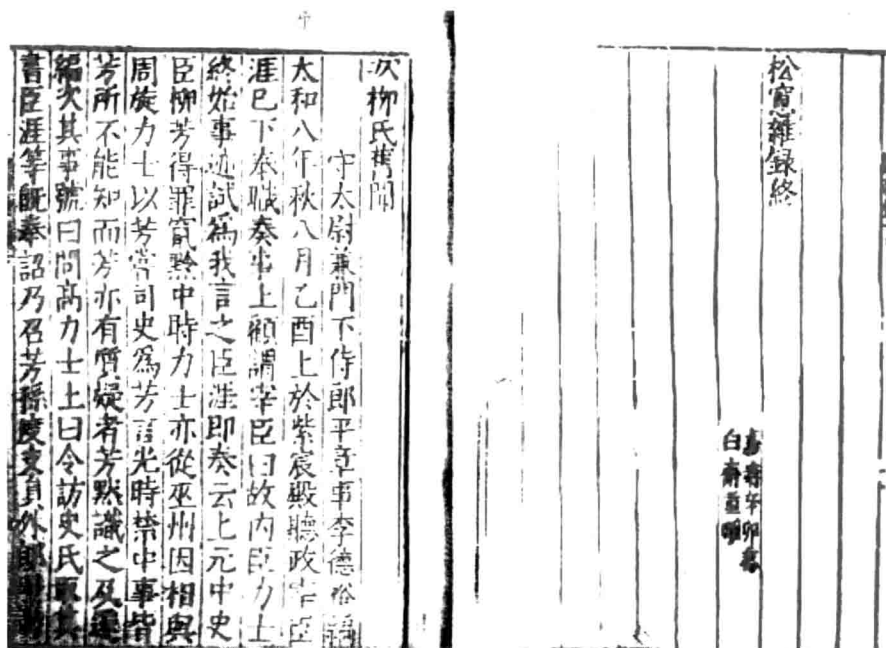 松窓雜錄終
次柳氏舊聞
守太尉兼門下侍郎平章事李德裕
太和八年秋八月乙酉上於紫宸殿聽政宰臣
涯已下奉職奏事上顧謂宰臣曰故內臣力士
終始事迹試爲我言之臣涯即奏云上元中史
臣柳芳得罪竄黔中時力士亦從巫州因相與
周旋力士以芳嘗司史爲芳言先時禁中事皆
芳所不能知而芳亦有質疑者芳默識之及還
編次其事號曰問高力士上曰令訪史氏取其
書臣涯等既奉詔乃召芳孫度支員外郎